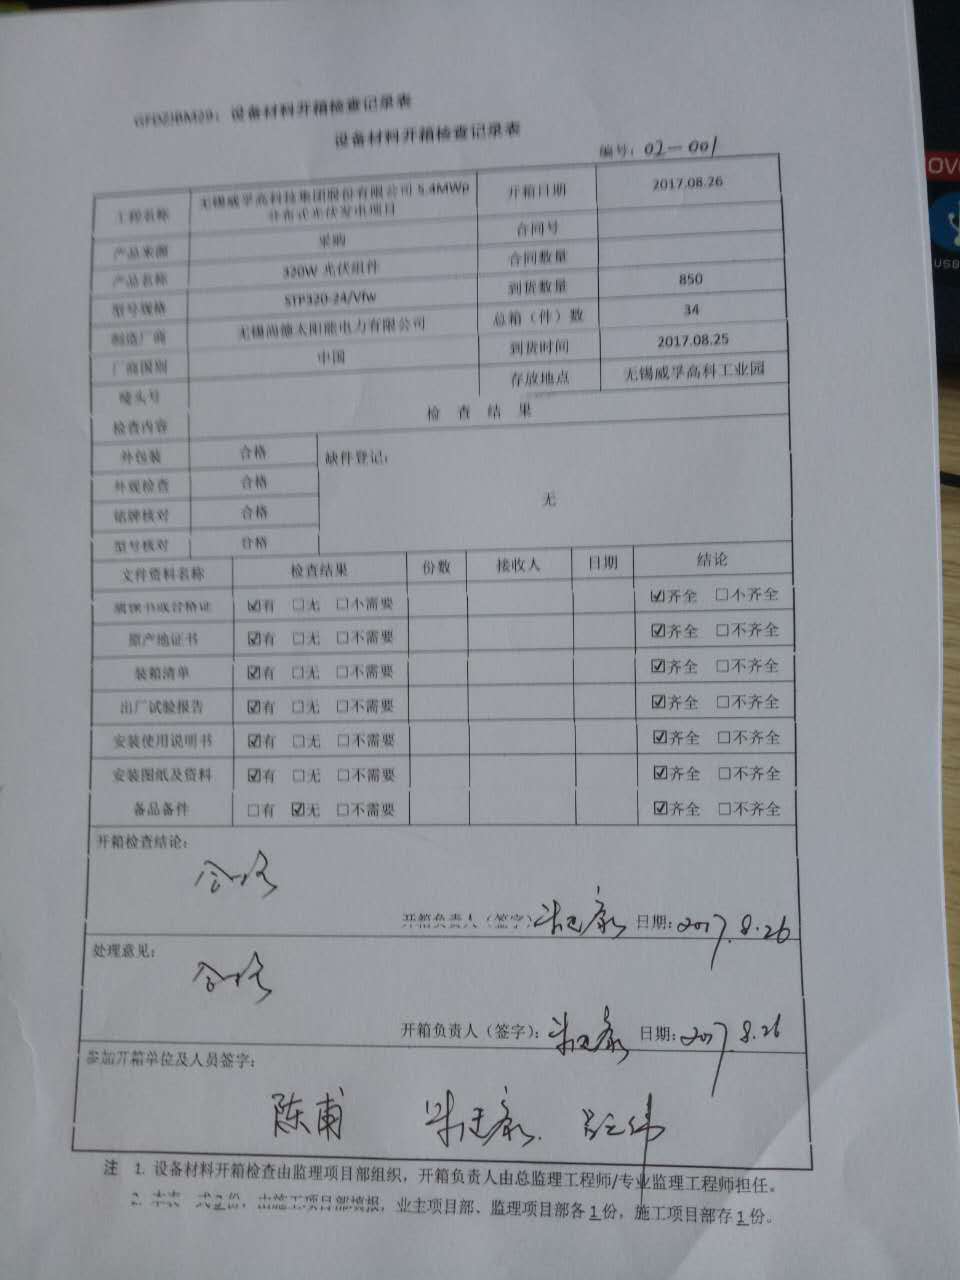 GFDZJBM29：设备材料开箱检查记录表
设备材料开箱检查记录表
编号：02-001
工程名称 无锡威孚高科技集团股份有限公司 5.4MWp 分布式光伏发电项目 开箱日期 2017.08.26
产品来源 采购 合同号
产品名称 320W 光伏组件 合同数量
型号规格 STP320-24/Vfw 到货数量 850
制造厂商 无锡尚德太阳能电力有限公司 总箱（件）数 34
厂商国别 中国 到货时间 2017.08.25
唛头号 存放地点 无锡威孚高科工业园
检查内容 检 查 结 果
外包装 合格 缺件登记：
外观检查 合格 无
铭牌核对 合格
型号核对 合格
文件资料名称 检查结果 份数 接收人 日期 结论
☑有 □无 □不需要 ☑齐全 □不齐全
原产地证书 ☑有 □无 □不需要 ☑齐全 □不齐全
装箱清单 ☑有 □无 □不需要 ☑齐全 □不齐全
出厂试验报告 ☑有 □无 □不需要 ☑齐全 □不齐全
安装使用说明书 ☑有 □无 □不需要 ☑齐全 □不齐全
安装图纸及资料 ☑有 □无 □不需要 ☑齐全 □不齐全
备品备件 □有 ☑无 □不需要 ☑齐全 □不齐全
开箱检查结论：
合格
开箱负责人（签字） 日期：2017.8.26
处理意见：
合格
开箱负责人（签字）： 日期：2017.8.26
参加开箱单位及人员签字：
陈甫
注 1. 设备材料开箱检查由监理项目部组织，开箱负责人由总监理工程师/专业监理工程师担任。
2. 本表一式2份，由施工项目部填报，业主项目部、监理项目部各1份，施工项目部存1份。
USB